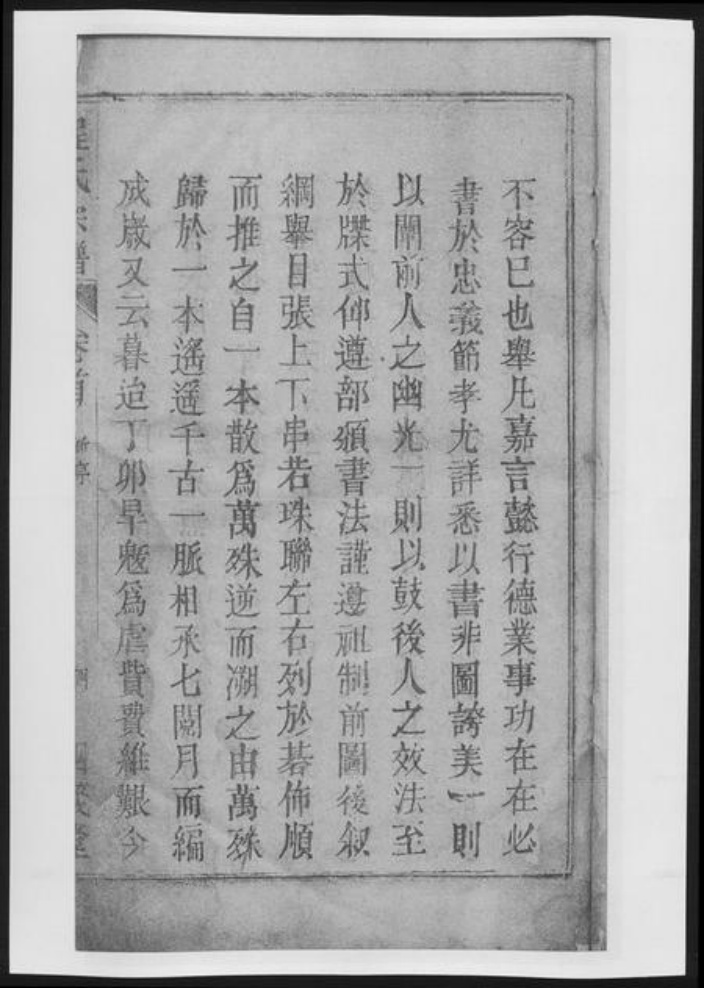 不容已也舉凡嘉言懿行德業事功在在必
書於忠義節孝尤詳悉以書非圖誇美一則
以闡前人之幽光一則以鼓後人之效法至
於牒式仰遵部頒書法謹遵祖制前圖後叙
綱舉目張上下串若珠聯左右列於碁佈順
而推之自一本散爲萬殊逆而溯之由萬殊
歸於一本遙遙千古一脈相承七閱月而編
成歲又云暮迨丁卯旱魃爲虐貲費維艱今
氏宗譜
卷首